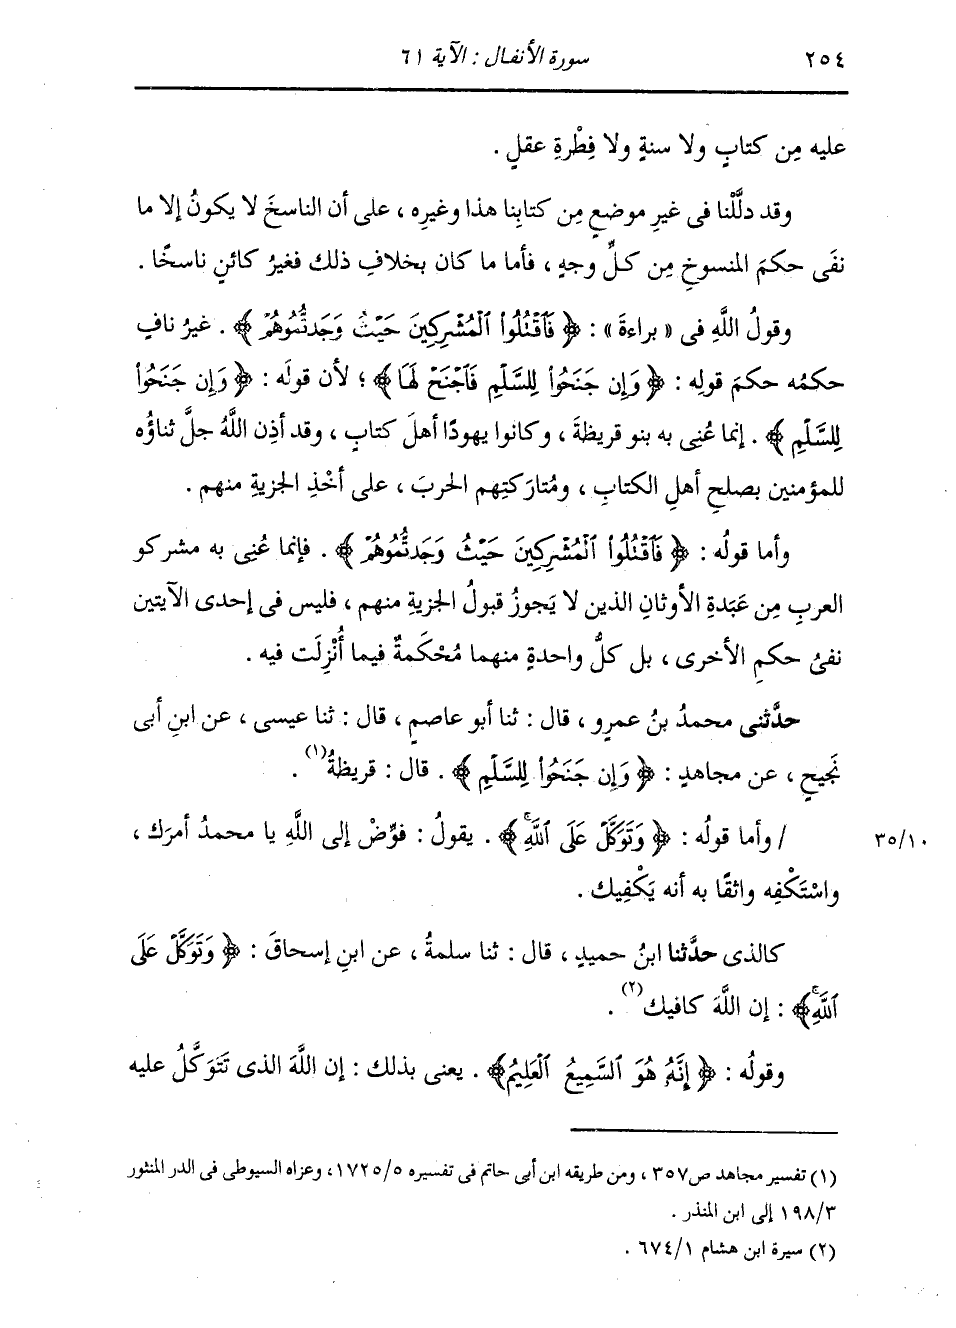 ٢٥٤ سورة الأنفال : الآية ٦١
عليه مِن كتابٍ ولا سنةٍ ولا فِطْرةِ عقلٍ .
وقد دلَّلْنا فى غيرِ موضعٍ مِن كتابِنا هذا وغيرِه ، على أن الناسخَ لا يكونُ إلا ما
نفَى حكمَ المنسوخِ مِن كلِّ وجهٍ ، فأما ما كان بخلافِ ذلك فغيرُ كائنٍ ناسخًا .
وقولُ اللَّهِ فى « براءةَ » : ﴿ فَٱقْتُلُوا۟ ٱلْمُشْرِكِينَ حَيْثُ وَجَدتُّمُوهُمْ ﴾ . غيرُ نافٍ
حكمُه حكمَ قولِه : ﴿ وَإِن جَنَحُوا۟ لِلسَّلْمِ فَٱجْنَحْ لَهَا ﴾ ؛ لأن قولَه : ﴿ وَإِن جَنَحُوا۟
لِلسَّلْمِ ﴾ . إنما عُنِى به بنو قريظةَ ، وكانوا يهودًا أهلَ كتابٍ ، وقد أذِن اللَّهُ جلَّ ثناؤُه
للمؤمنين بصلحِ أهلِ الكتابِ ، ومُتارَكتِهم الحربَ ، على أخْذِ الجزيةِ منهم .
وأما قولُه : ﴿ فَٱقْتُلُوا۟ ٱلْمُشْرِكِينَ حَيْثُ وَجَدتُّمُوهُمْ ﴾ . فإنما عُنِى به مشركو
العربِ مِن عَبَدةِ الأوثانِ الذين لا يَجوزُ قبولُ الجزيةِ منهم ، فليس فى إحدى الآيتين
نفىُ حكمِ الأخرى ، بل كلُّ واحدةٍ منهما مُحْكَمةٌ فيما أُنْزِلَت فيه .
حدَّثنى محمدُ بنُ عمرٍو ، قال : ثنا أبو عاصمٍ ، قال : ثنا عيسى ، عن ابنِ أبى
نَجيحٍ ، عن مجاهدٍ : ﴿ وَإِن جَنَحُوا۟ لِلسَّلْمِ ﴾ . قال : قريظةُ (١) .
١٠/٣٥ / وأما قولُه : ﴿ وَتَوَكَّلْ عَلَى ٱللَّهِۚ ﴾ . يقولُ : فوِّضْ إلى اللَّهِ يا محمدُ أمرَك ،
واسْتَكْفِه واثقًا به أنه يَكْفِيك .
كالذى حدَّثنا ابنُ حميدٍ ، قال : ثنا سلمةُ ، عن ابنِ إسحاقَ : ﴿ وَتَوَكَّلْ عَلَى
ٱللَّهِۚ ﴾ : إن اللَّهَ كافيك (٢) .
وقولُه : ﴿ إِنَّهُۥ هُوَ ٱلسَّمِيعُ ٱلْعَلِيمُ ﴾ . يعنى بذلك : إن اللَّهَ الذى تَتَوكَّلُ عليه
(١) تفسير مجاهد ص٣٥٧ ، ومن طريقه ابن أبى حاتم فى تفسيره ١٧٢٥/٥ ، وعزاه السيوطى فى الدر المنثور
١٩٨/٣ إلى ابن المنذر .
(٢) سيرة ابن هشام ٦٧٤/١ .